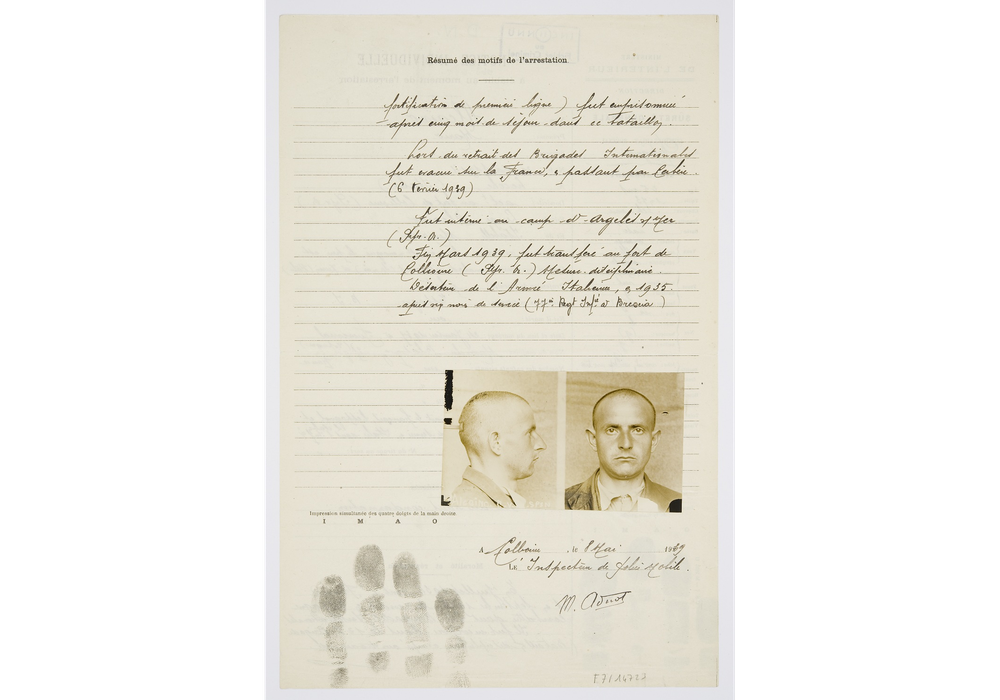 Résumé des motifs de l'arrestation.
fortification de première ligne) fut emprisonné
après cinq mois de séjour dans ce bataillon.
Lors du retrait des Brigades Internationales
fut évacué sur la France, passant par Cerbère
(6 Février 1939)
Fut interné au camp d'Argelès s/Mer
(Pyr. Or.)
Fin Mars 1939, fut transféré au fort de
Collioure (Pyr. Or.) Mesure disciplinaire.
Déserteur de l'Armée Italienne, 1935.
après six mois de service (77e Regt Inf. à Brescia)
Impression simultanée des quatre doigts de la main droite
I M A O
A Collioure, le 8 Mai 1939
Le Inspecteur de Police Mobile.
M.